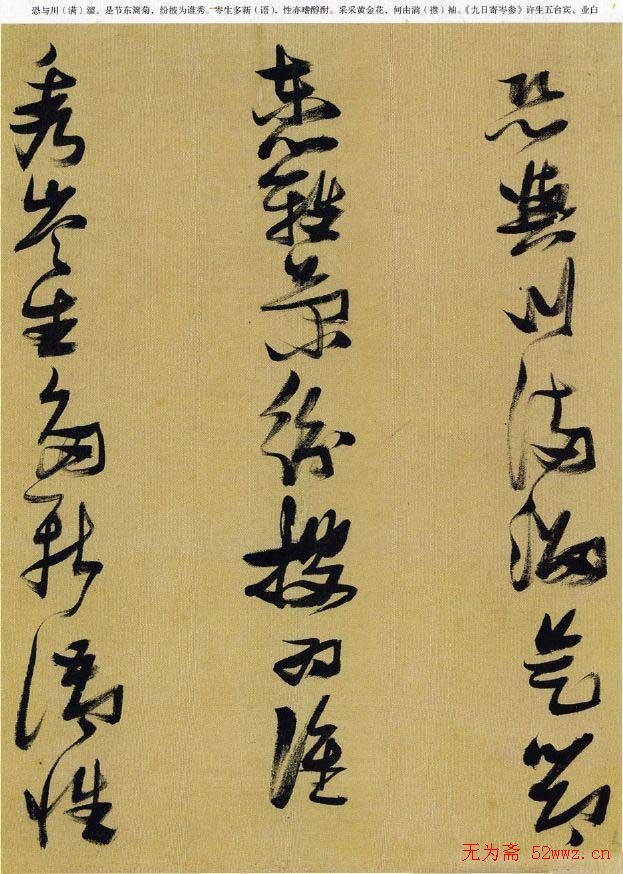 恐与川（满）溜。是节东篱菊，纷披为谁秀。岑生多新（语），性亦嗜醇酎。采采黄金花，何由满（襟）袖。《九日寄岑参》许生五台宾，业白
恐與川滿溜是節
東籬菊紛披为誰
秀岑生多新語性
无为斋 52wwz.cn